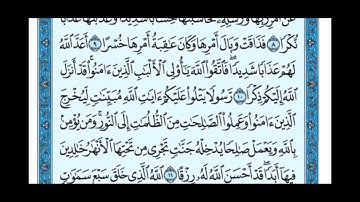 عَنْ أَمْرِ رَبِّهَا وَرُسُلِهِۦ فَحَاسَبْنَٰهَا حِسَابًا شَدِيدًا وَعَذَّبْنَٰهَا عَذَابًا
نُّكْرًا ٨ فَذَاقَتْ وَبَالَ أَمْرِهَا وَكَانَ عَٰقِبَةُ أَمْرِهَا خُسْرًا ٩ أَعَدَّ ٱللَّهُ
لَهُمْ عَذَابًا شَدِيدًا ۖ فَٱتَّقُوا۟ ٱللَّهَ يَٰٓأُو۟لِى ٱلْأَلْبَٰبِ ٱلَّذِينَ ءَامَنُوا۟ ۚ قَدْ أَنزَلَ
ٱللَّهُ إِلَيْكُمْ ذِكْرًا ١٠ رَّسُولًا يَتْلُوا۟ عَلَيْكُمْ ءَايَٰتِ ٱللَّهِ مُبَيِّنَٰتٍ لِّيُخْرِجَ
ٱلَّذِينَ ءَامَنُوا۟ وَعَمِلُوا۟ ٱلصَّٰلِحَٰتِ مِنَ ٱلظُّلُمَٰتِ إِلَى ٱلنُّورِ ۚ وَمَن يُؤْمِنۢ
بِٱللَّهِ وَيَعْمَلْ صَٰلِحًا يُدْخِلْهُ جَنَّٰتٍ تَجْرِى مِن تَحْتِهَا ٱلْأَنْهَٰرُ خَٰلِدِينَ
فِيهَآ أَبَدًا ۖ قَدْ أَحْسَنَ ٱللَّهُ لَهُۥ رِزْقًا ١١ ٱللَّهُ ٱلَّذِى خَلَقَ سَبْعَ سَمَٰوَٰتٍ